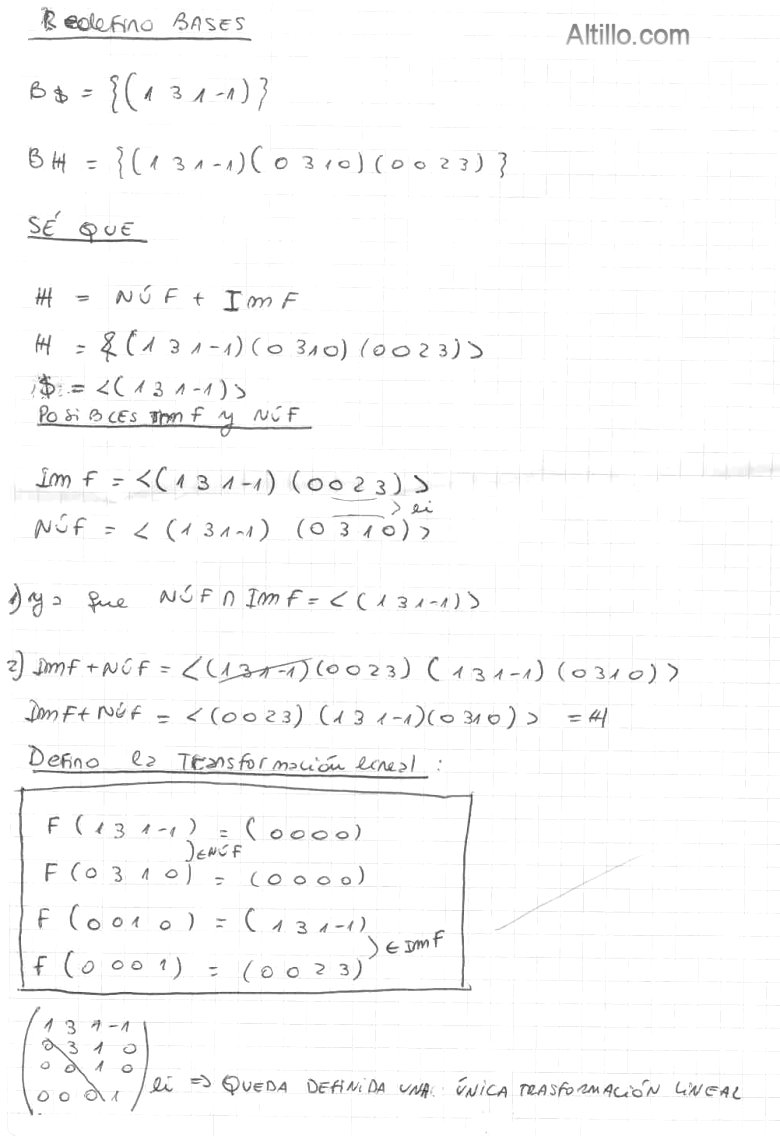 Redefino BASES
Altillo.com
B$ = {(1 3 1 -1)}
BH = {(1 3 1 -1)(0 3 1 0)(0 0 2 3)}
SÉ QUE
H = NÚ F + Im F
H = <(1 3 1 -1)(0 3 1 0)(0 0 2 3)>
$ = <(1 3 1 -1)>
POSIBLES Im F y NÚF
Im F = <(1 3 1 -1) (0 0 2 3)>
> li
NÚF = <(1 3 1 -1) (0 3 1 0)>
1) ya que NÚF ∩ ImF = <(1 3 1 -1)>
2) ImF + NÚF = <(1 3 1 -1)(0 0 2 3) (1 3 1 -1)(0 3 1 0)>
ImF + NÚF = <(0 0 2 3)(1 3 1 -1)(0 3 1 0)> = H
Defino la Transformación lineal :
F(1 3 1 -1) = (0 0 0 0)
) ∈ NÚF
F(0 3 1 0) = (0 0 0 0)
F(0 0 1 0) = (1 3 1 -1)
) ∈ ImF
F(0 0 0 1) = (0 0 2 3)
1 3 1 -1
0 3 1 0
0 0 1 0
0 0 0 1 li => QUEDA DEFINIDA UNA ÚNICA TRASFORMACIÓN LINEAL